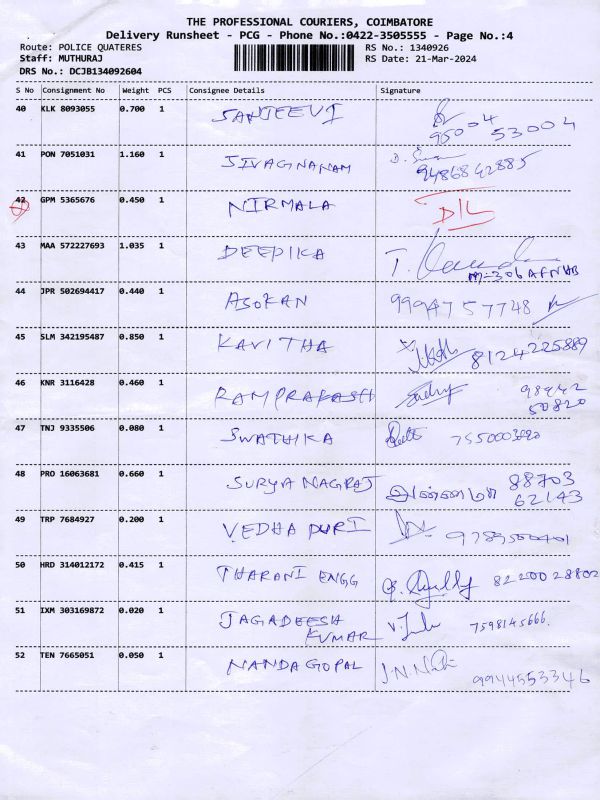 THE PROFESSIONAL COURIERS, COIMBATORE
Delivery Runsheet - PCG - Phone No.:0422-3505555 - Page No.:4
Route: POLICE QUATERES RS No.: 1340926
Staff: MUTHURAJ RS Date: 21-Mar-2024
DRS No.: DCJB134092604
S No Consignment No Weight PCS Consignee Details Signature
40 KLK 8093055 0.700 1 SANJEEVI 95004 53004
41 PON 7051031 1.160 1 SIVAGNANAM 9486842885
42 GPM 5365676 0.450 1 NIRMALA D/L
43 MAA 572227693 1.035 1 DEEPIKA M-306 AFNHB
44 JPR 502694417 0.440 1 ASOKAN 9994757748
45 SLM 342195487 0.850 1 KAVITHA 8124225889
46 KNR 3116428 0.460 1 RAMPRAKASH 98942
50820
47 TNJ 9335506 0.080 1 SWATHIKA
48 PRO 16063681 0.660 1 SURYA NAGRAJ 88703
62143
49 TRP 7684927 0.200 1 VEDHA PURI
50 HRD 314012172 0.415 1 THARANI ENGG 8220028802
51 IXM 303169872 0.020 1 JAGADEESH
KUMAR 7598145666.
52 TEN 7665051 0.050 1 NANDA GOPAL 9944553346